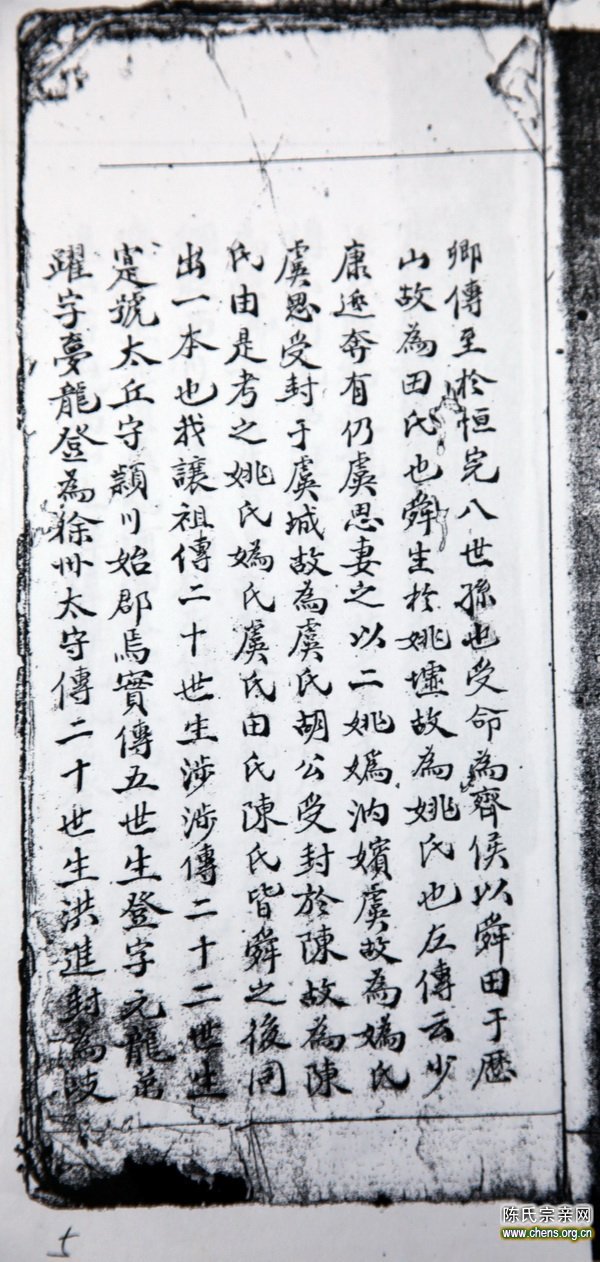 卿傳至於恒完八世孫也受命為齊侯以舜田于歷
山故為田氏也舜生於姚墟故為姚氏也左傳云少
康逃奔有仍虞思妻之以二姚嬀汭嬪虞故為嬀氏
虞思受封于虞城故為虞氏胡公受封於陳故為陳
氏由是考之姚氏嬀氏虞氏田氏陳氏皆舜之後同
出一本也我讓祖傳二十世生涉涉傳二十二世生
寔號太丘守潁川始郡焉實傳五世生登字元龍弟
躍字夢龍登為徐州太守傳二十世生洪進封為岐
5
陈氏宗亲网
www.chens.org.cn